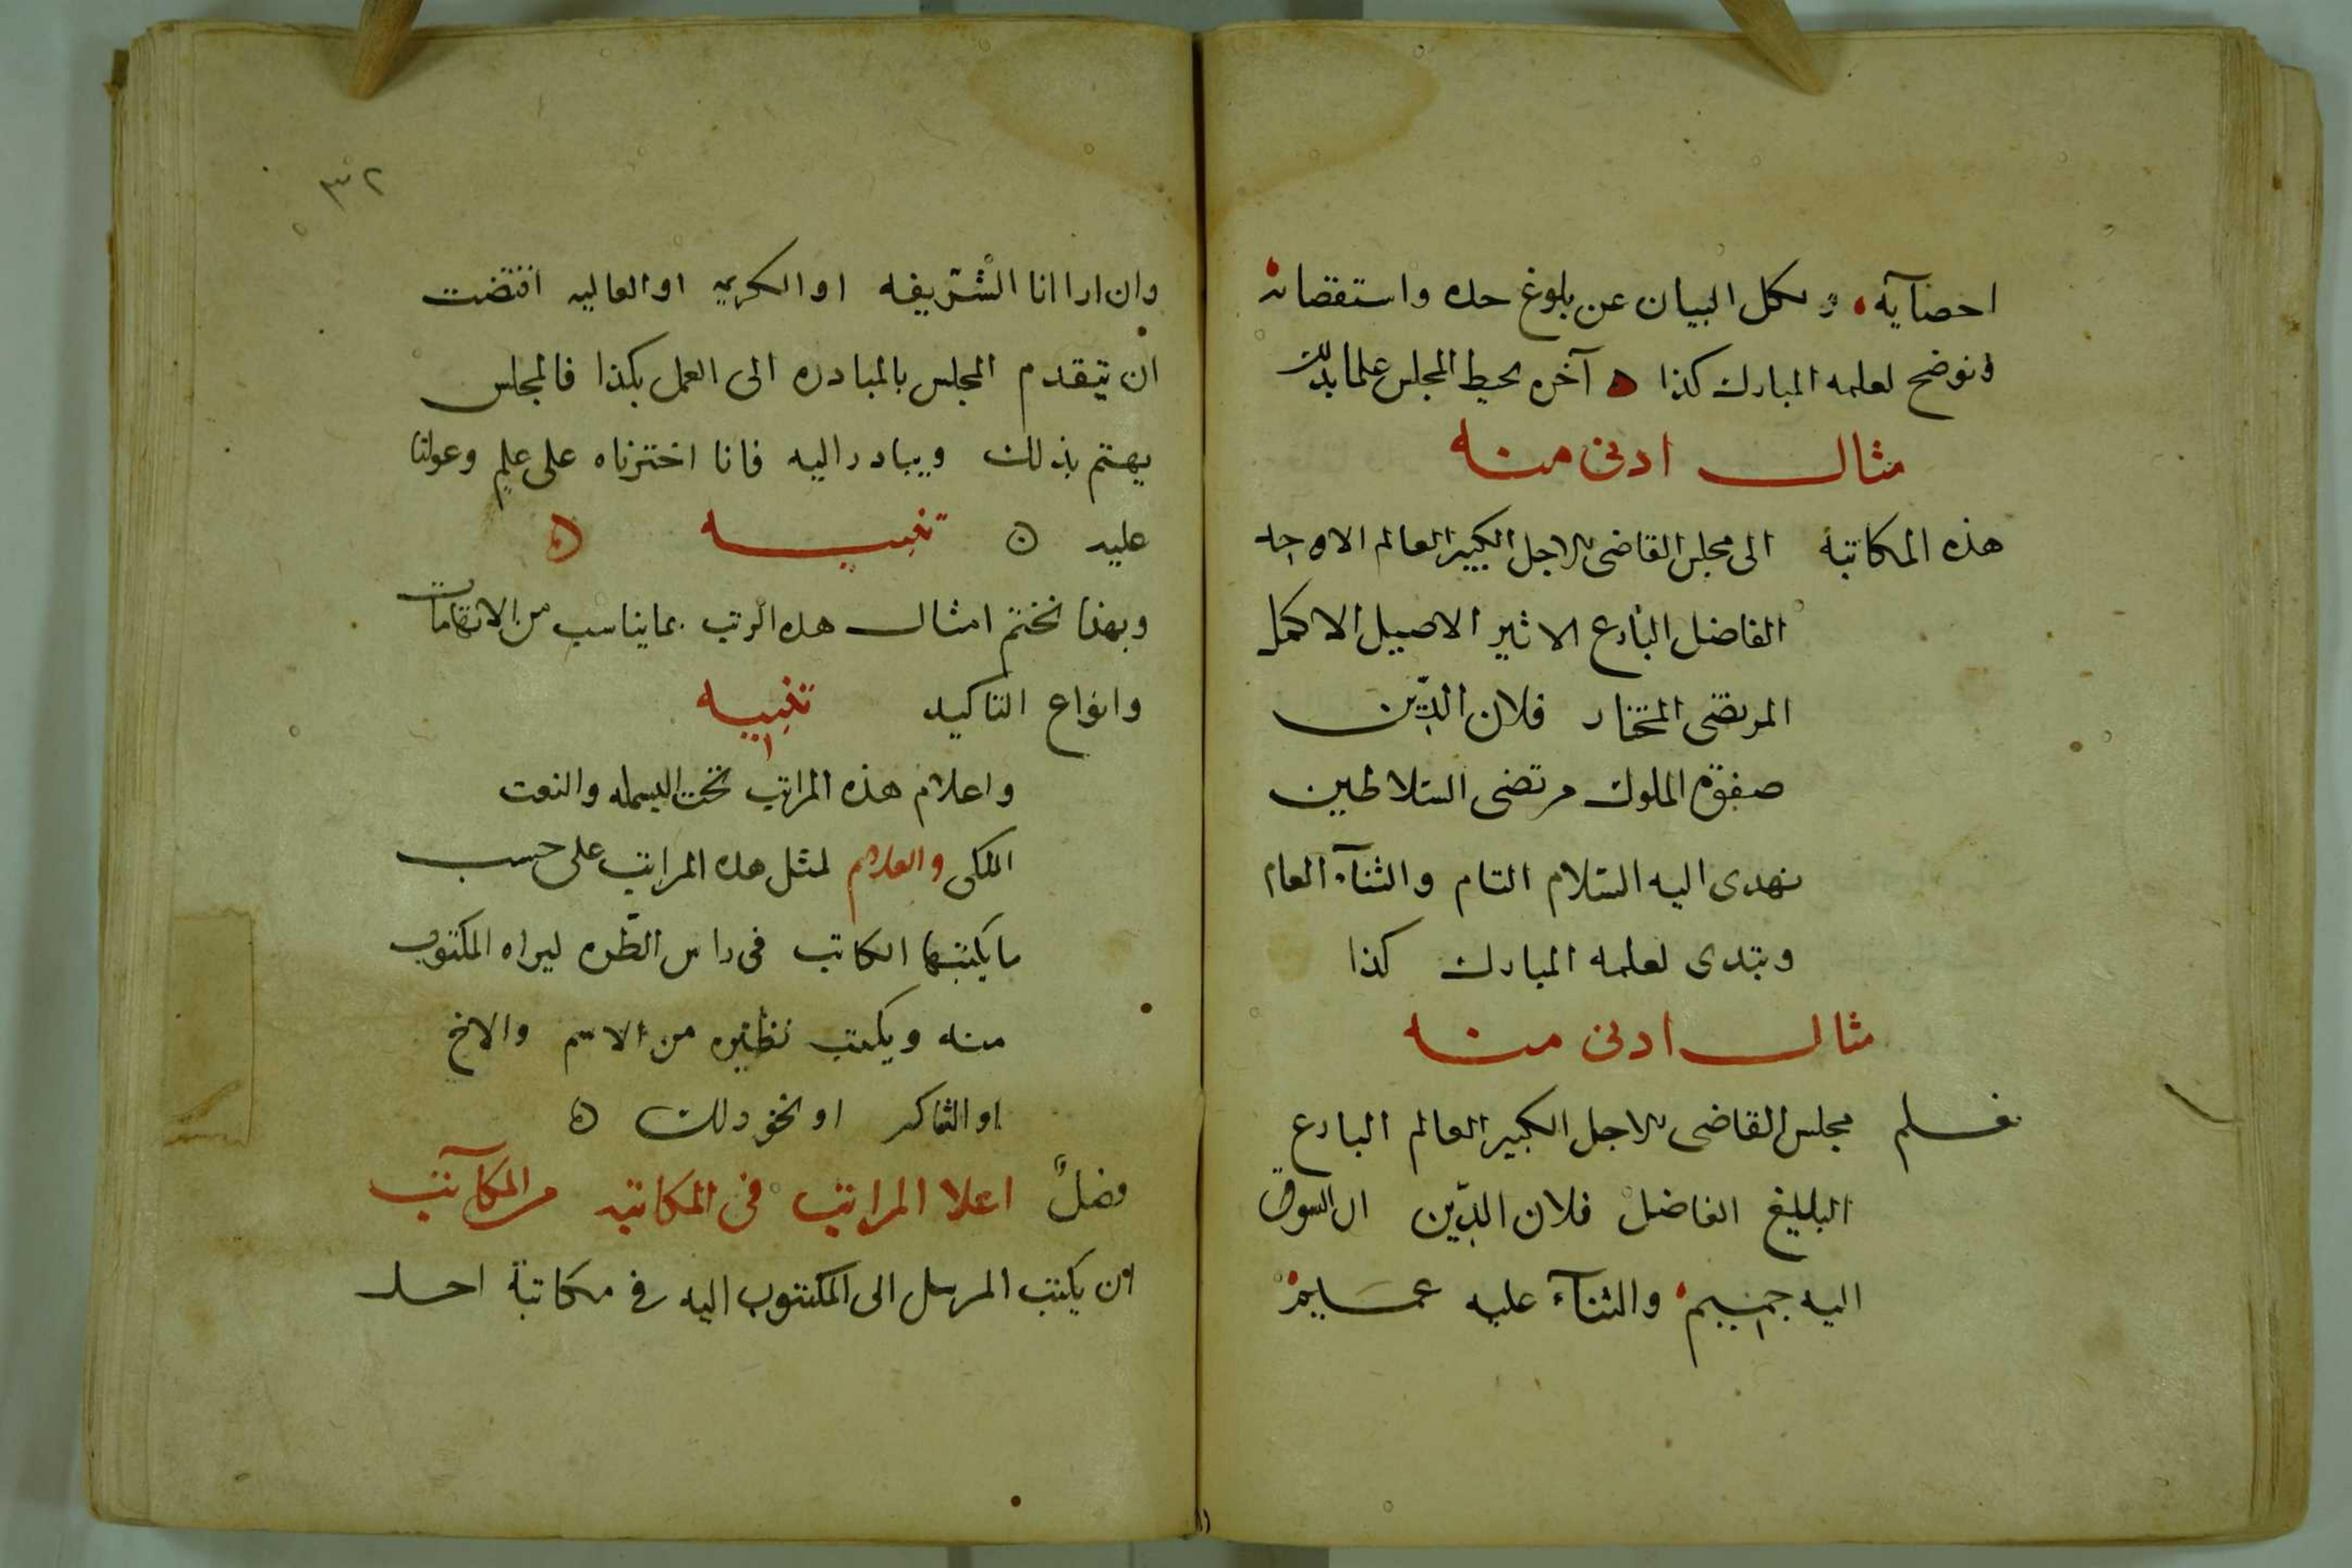 احصآيه ويكل البيان عن بلوغ حده واستقصائه
ونوضح لعلمه المبارك كذا ه آخره يحيط المجلس علما بذلك
مثال ادنى منه
هذه المكاتبة الى مجلس القاضى الاجل الكبير العالم الاوحد
الفاضل البارع الاثير الاصيل الاكمل
المرتضى المختار فلان الدّين
صفوة الملوك مرتضى السّلاطين
نهدى اليه السّلام التام والثنآء العام
ونبدى لعلمه المبارك كذا
مثال ادنى منه
نعلم مجلس القاضى الاجل الكبير العالم البارع
البليغ الفاضل فلان الدّين ان الشوق
اليه جسيم والثنآء عليه عميم
٣٢
وان اراانا الشّريفه او الكريمه او العاليه اقتضت
ان يتقدم المجلس بالمبادره الى العمل بكذا فالمجلس
يهتم بذلك ويبادر اليه فانا اخترناه على علم وعولنا
عليه ه تنبيه ه
وبهذا نختم امثال هذه الرتب بما يناسب من
وانواع التاكيد تنبيه
واعلام هذه المراتب تحت البسمله والنعت
الملكى والعلام لمثل هذه المراتب على حسب
ما يكتبها الكاتب فى راس الطّره ليراه المكتوب
منه ويكتب نظيره من الاسم والاخ
او الشاكر او نحو ذلك ه
فصلٌ اعلا المراتب فى المكاتبه من المكاتب
ان يكتب المرسل الى المكتوب اليه فى مكاتبة احد